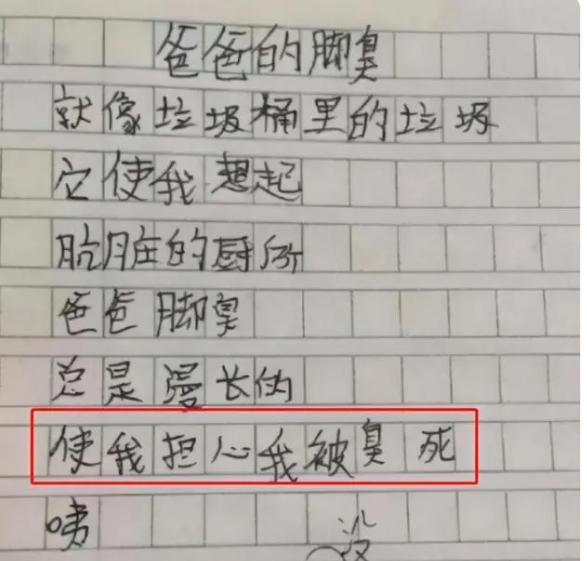 爸爸的脚臭
就像垃圾桶里的垃圾
它使我想起
肮脏的厕所
爸爸脚臭
总是漫长的
使我担心我被臭死
咦
没